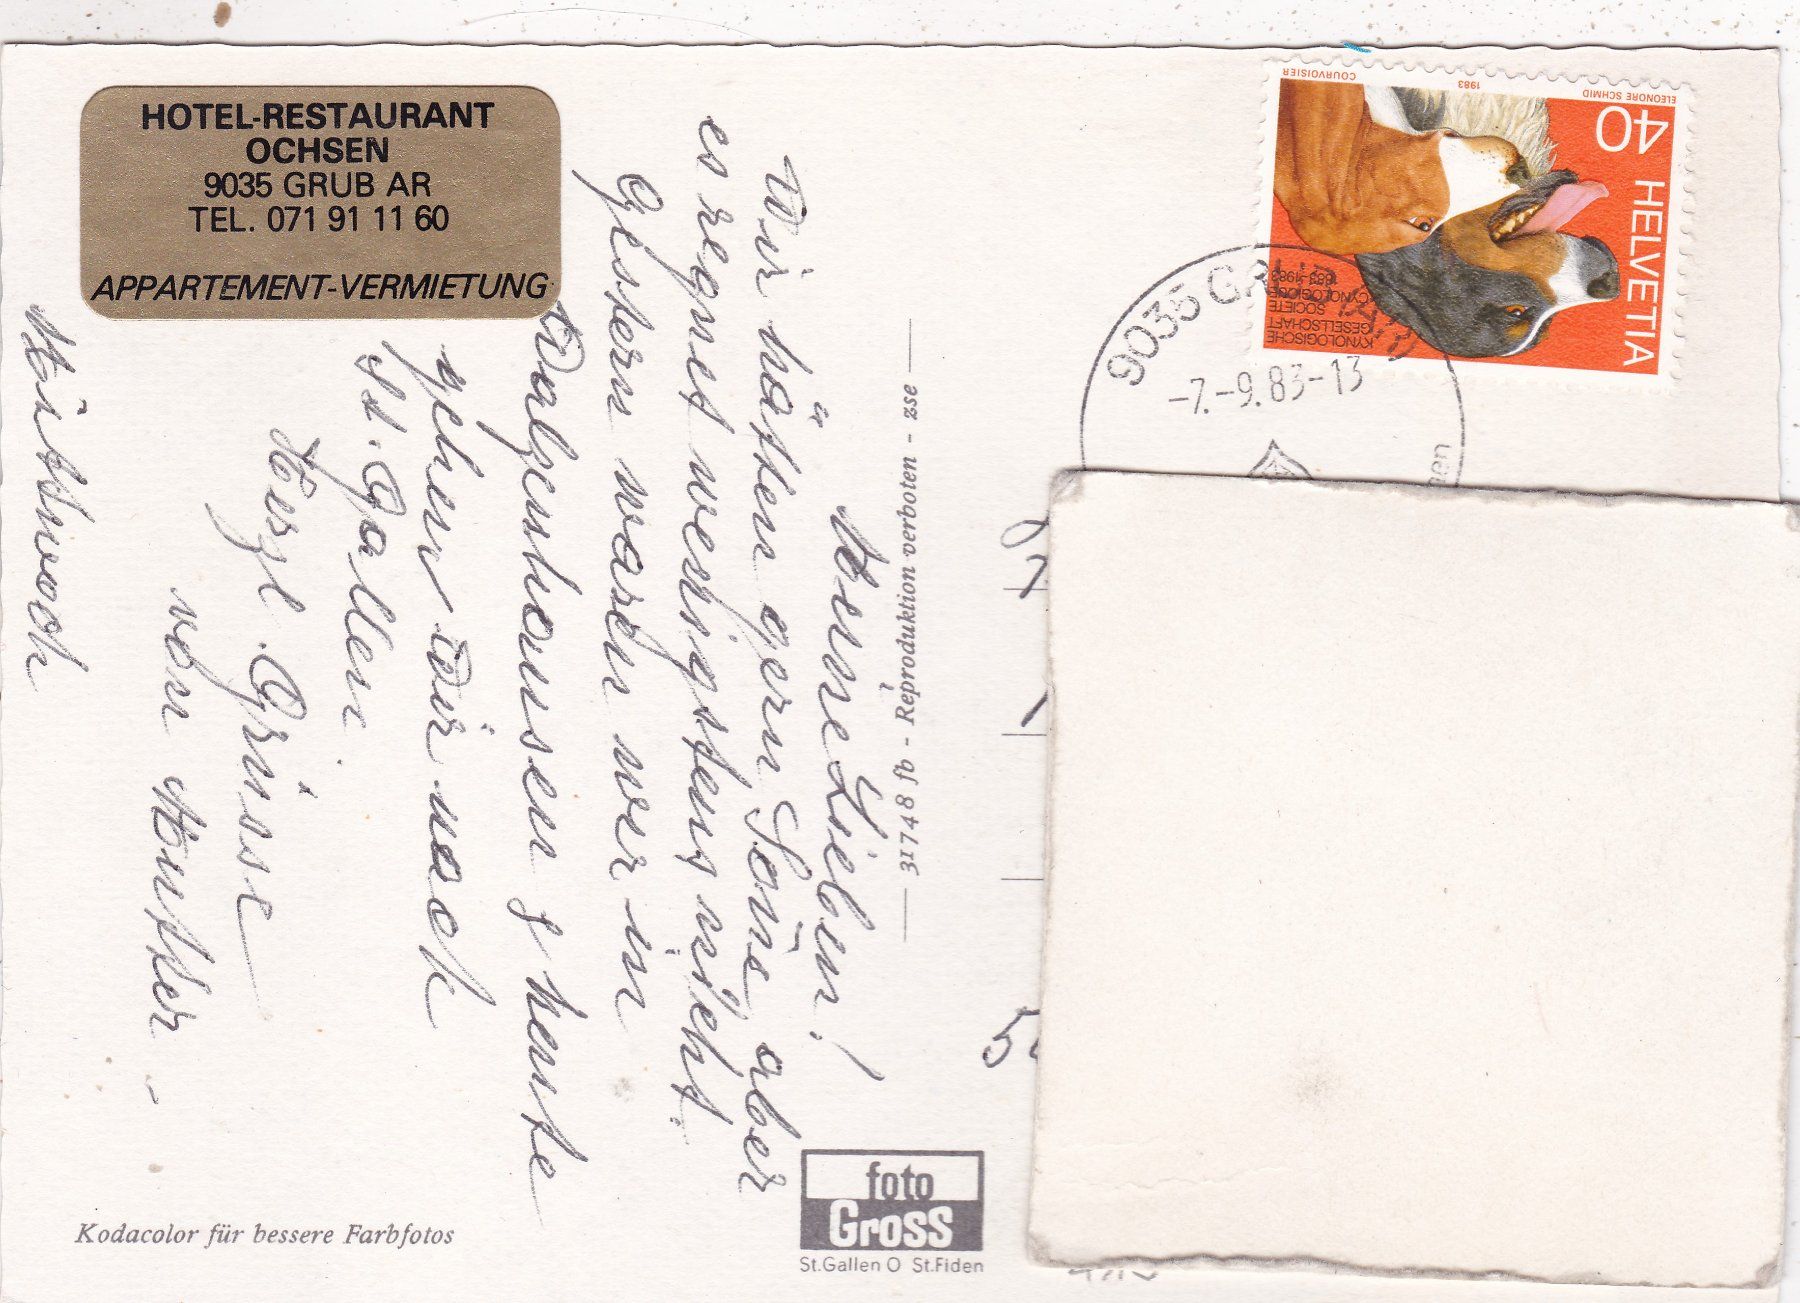 HOTEL-RESTAURANT
OCHSEN
9035 GRUB AR
TEL. 071 91 11 60
APPARTEMENT-VERMIETUNG
Mittwoch
Meine Lieben!
Wir hätten gern Sonne aber
es regnet wenigstens nicht.
Gestern waren wir in
Walzenhausen & heute
gehen wir nach
St. Gallen
Herzl. Grüsse
von Mutter
31748 fb - Reproduktion verboten - zse
Kodacolor für bessere Farbfotos
foto
Gross
St.Gallen O St.Fiden
ELEONORE SCHMID
1983
COURVOISIER
40 HELVETIA
KYNOLOGISCHE
GESELLSCHAFT
SOCIETE
CYNOLOGIQUE
1883-1983
9035 GRUB (AR)
-7.-9.83-13